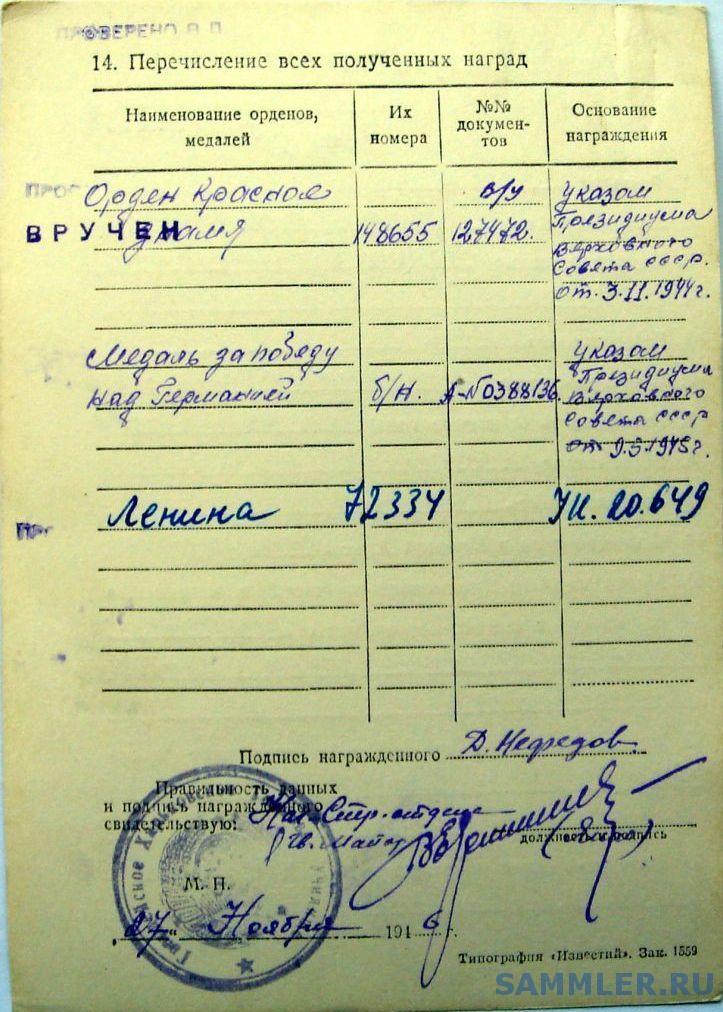 ПРОВЕРЕНО
14. Перечисление всех полученных наград
Наименование орденов, медалей
Их номера
№№ документов
Основание награждения
Орден Красное в/у Указом
ВРУЧЕН Знамя 148655 127472. Президиума
Верховного
Совета СССР.
от 3.11.1944г.
Медаль за победу Указом
над Германией б/н. А-№0388136. Президиума
Верховного
Совета СССР
от 9.5.1945г.
Ленина 72334 Ук. 20.649
Подпись награжденного Д. Нефедов
Правильность данных
и подпись награжденного
свидетельствую: Нач. Стр. отдела
Гв. Майор
должность и подпись
М. П.
"27" Ноября 1946 г.
Типография «Известий». Зак. 1559
SAMMLER.RU